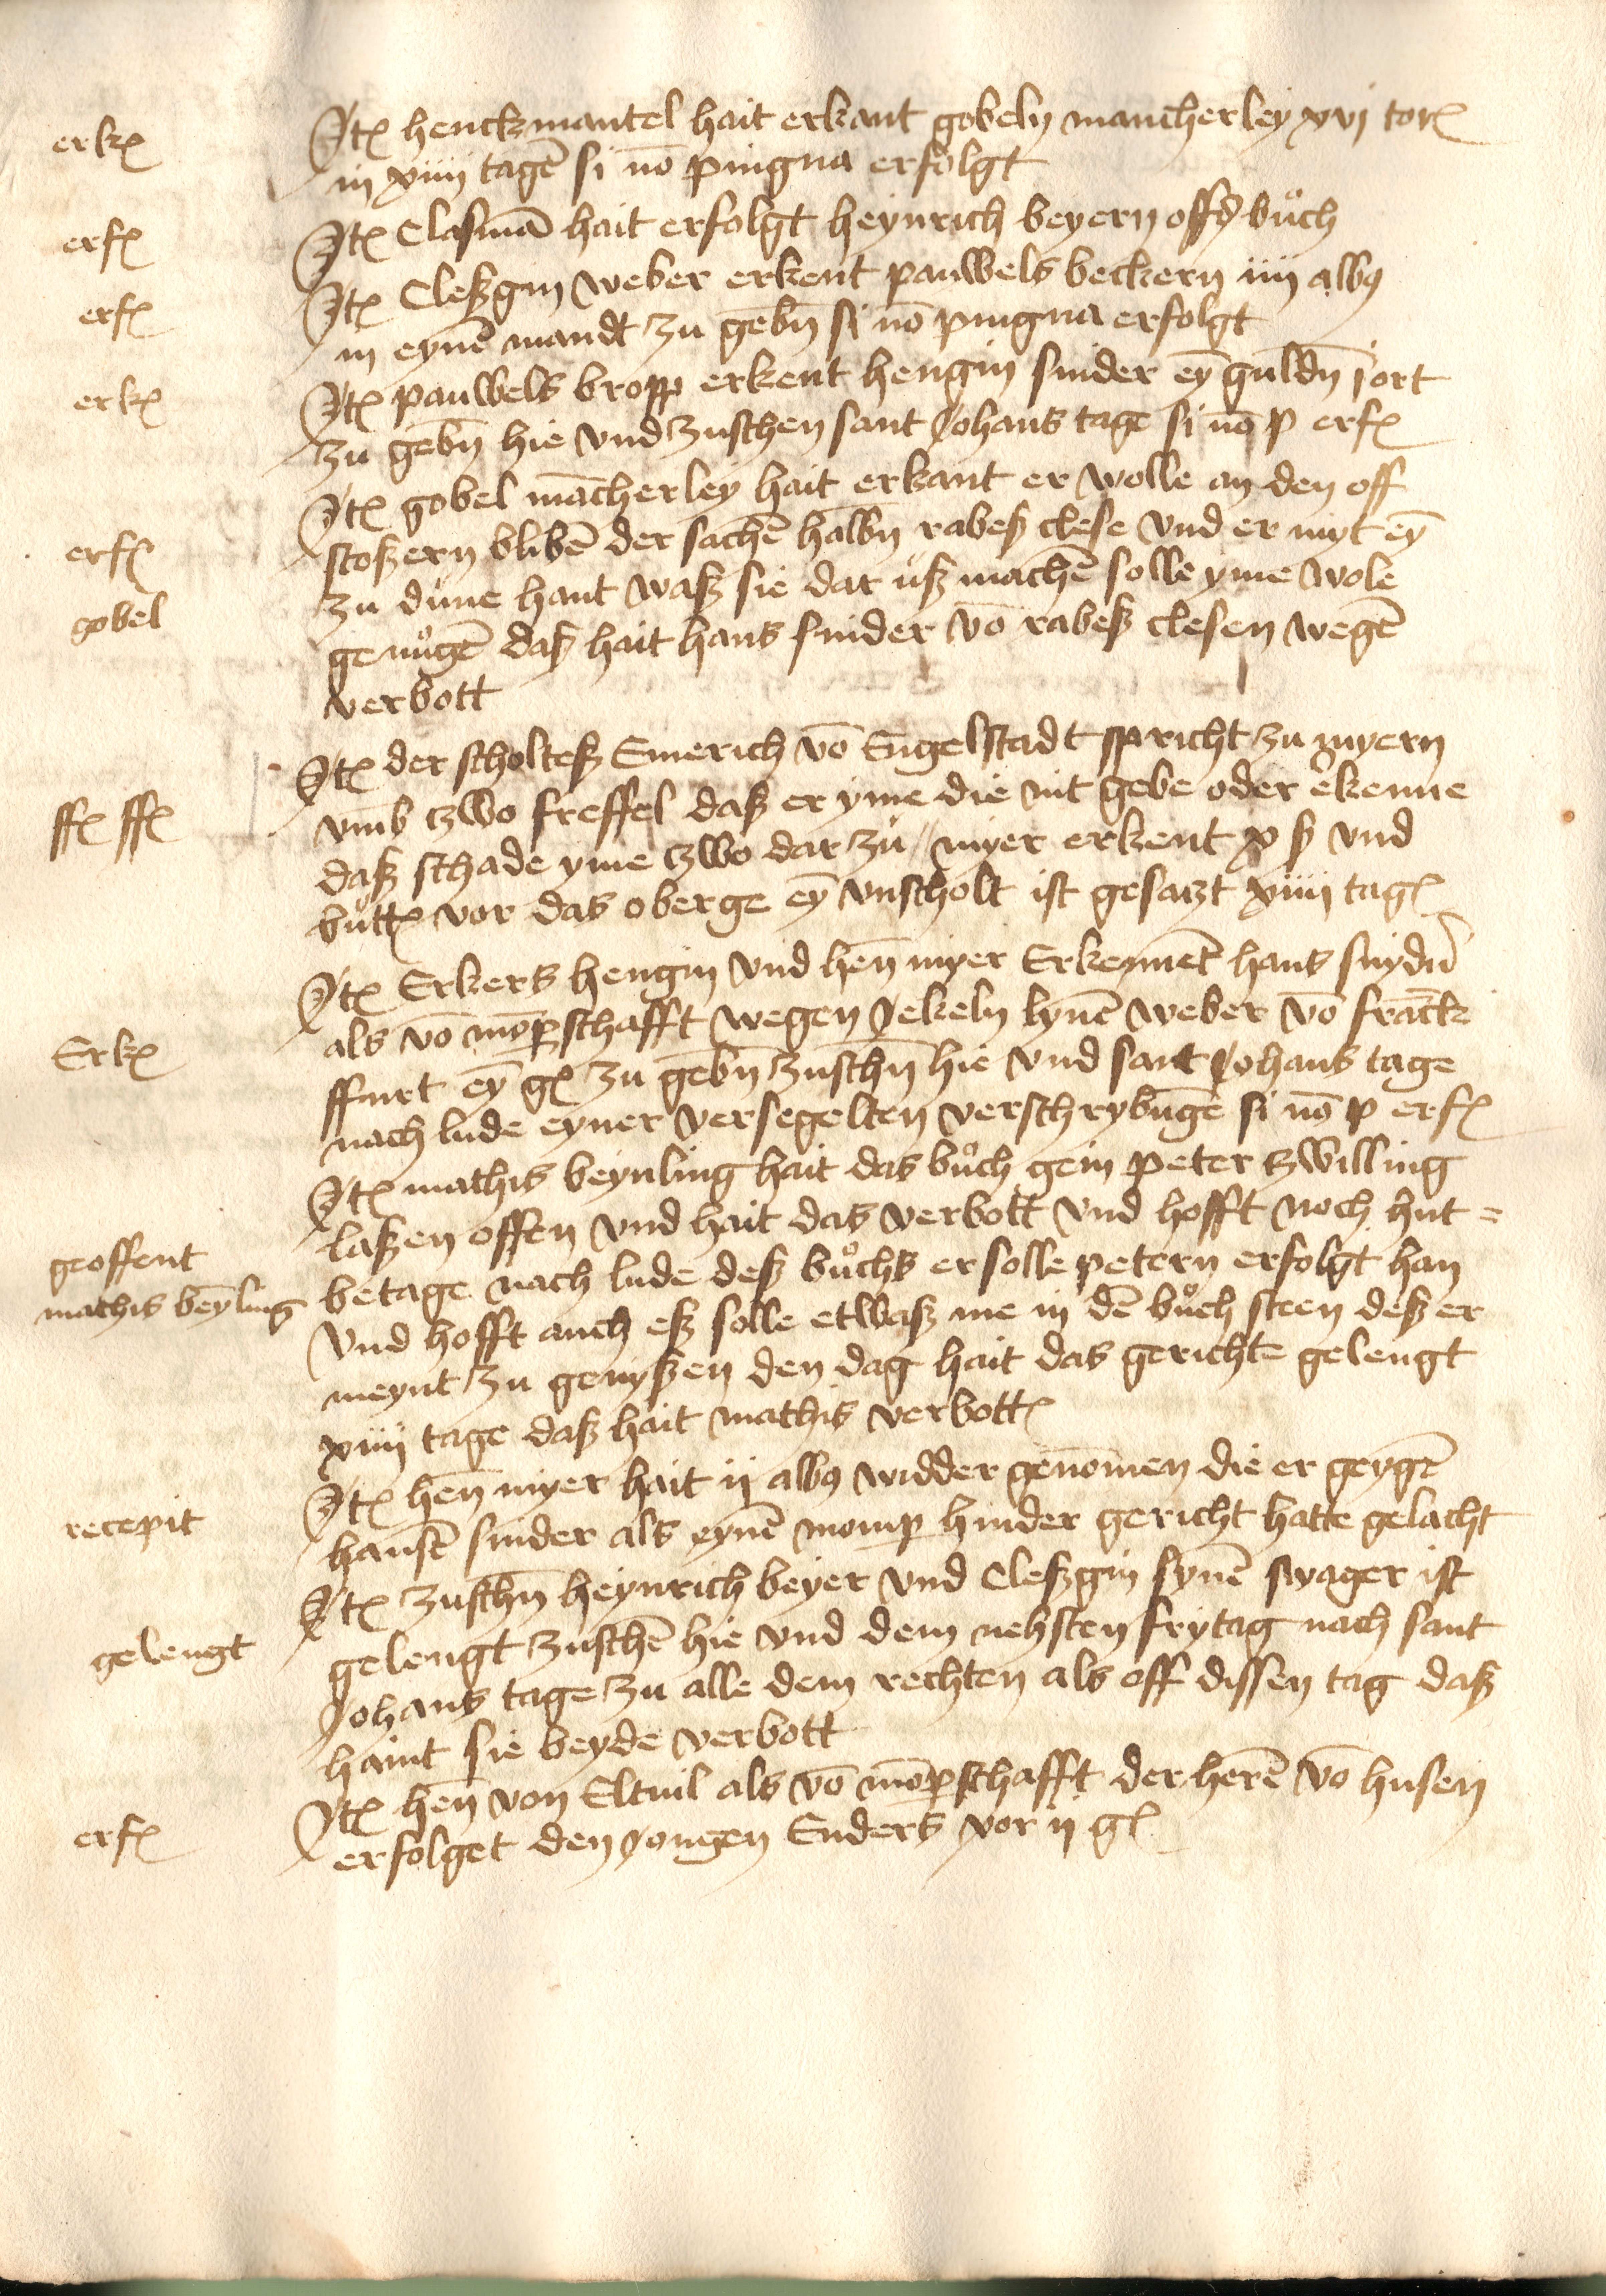 erkꝭ
Itꝭ henckmantel hait erkant gobeln mancherley xvj torꝭ
in xiiij tagē si nō pingna erfolgt
erfꝭ
Itꝭ Clasmā hait erfolgt heynrich beyern offs buͦch
erfꝭ
Itꝭ Cleßgin weber erkent pauwels beckern iiij albꝯ
in eynē mandt zu gebn̄ si nō pingna erfolgt
erkꝭ
Itꝭ pauwels bropp erkent hengin snider eȳ guldn̄ j ort
zu gebn̄ hie vnd zuschen sant Johans tage si nō p erfꝭ
erfꝭ
gobel
Itꝭ gobel mācherley hait erkant er wolle an den off
stoßern blibē der sachē halbn̄ rabeß clese vnd er myt eȳ
zu dune hant waß sie dar uß machē solle yme wole
genuͦgē daß hait hans snider vō rabeß clesen wegē
verbott
ffꝭ ffꝭ
Itꝭ der scholteß Emerich vō Engelstadt spricht zu myern
vmb czwo freffel daß er yme die nit gebe oder ekenne
daß schade yme czwo dar zu / myer erkent x ß vnd
buttꝭ vor das oberge eȳ vnscholt ist gesatzt xiiij tagꝭ
Erkꝭ
Itꝭ Erkers hengin vnd hen̄ myer Erkennet hans snydn̄
als vō mōperschafft wegen Jekeln lynē weber vō franck
ffurt eȳ gꝭ zu gebn̄ zuschn̄ hie vnd sant Johans tage
nach lude eyner versegelten verschrybūge si nō p erfꝭ
geoffent
mathis beȳling
Itꝭ mathis beynling hait das buͦch gein peter zwilling
laßen offen vnd hait das verbott vnd hofft noch hut =
betage nach lude deß buͦchs er solle petern erfolgt han
vnd hofft auch eß solle etwaß me in dē buͦch steen deß er
meynt zu genyßen den dag hait das gerichte gelengt
xiiij tage daß hait mathis verbottꝭ
recepit
Itꝭ hen̄ myer hait ij albꝯ widder genōmen die er geygē
hansē snider als eynē momp hinder gericht hatte gelacht
gelengt
Itꝭ zuschn̄ heynrich beyer vnd Cleßgin synē swager ist
gelengt zuschē hie vnd dem nehsten frytag nach sant
Johans tage zu alle dem rechten als off dissen tag daß
haint sie beyde verbott
erfꝭ
Itꝭ hen̄ von Eltuil als vō mōperschafft der herē vō husen
erfolget den Jongen Enders vor ij gꝭ